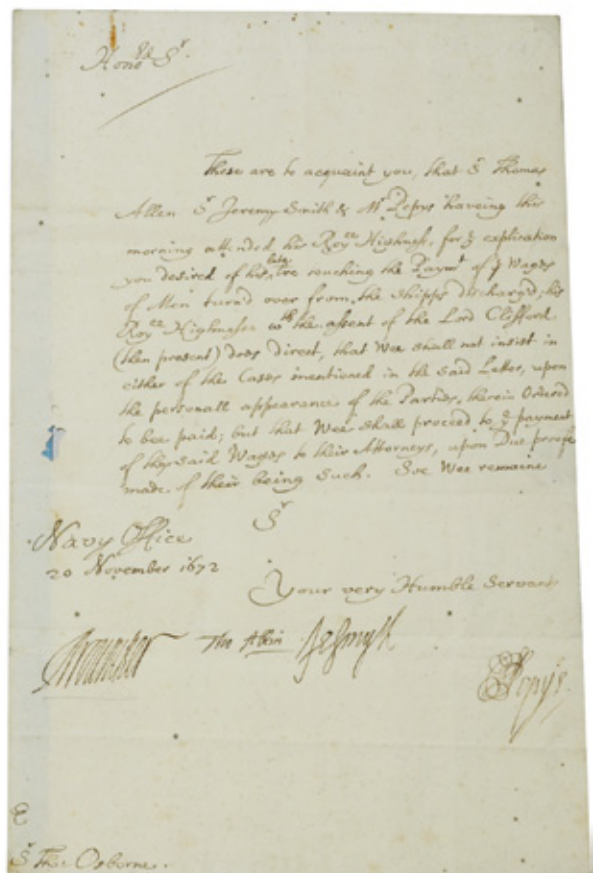 Honoble Sr.
These are to acquaint you, that Sr Thomas
Allen Sr Jeremy Smith & Mr Pepys haveing this
morning attended his Royll Highness, for ye explication
you desired of his late Lre touching the Paymt of ye Wages
of Men turn'd over from the Shipps discharg'd; his
Royll Highnesse wth the assent of the Lord Clifford
(then present) does direct, that Wee shall not insist in
either of the Cases mentioned in the said Letter, upon
the personall appearance of the Partys, therein Ordered
to bee paid; but that Wee shall proceed to ye payment
of the said Wages to their Attorneys, upon Due proofe
made of their being Such. Soe Wee remaine
Sr
Navy Office
20 November 1672
Your very Humble Servants
Brouncker Tho Allin Je Smyth
SPepys.
Sr Tho: Osborne.